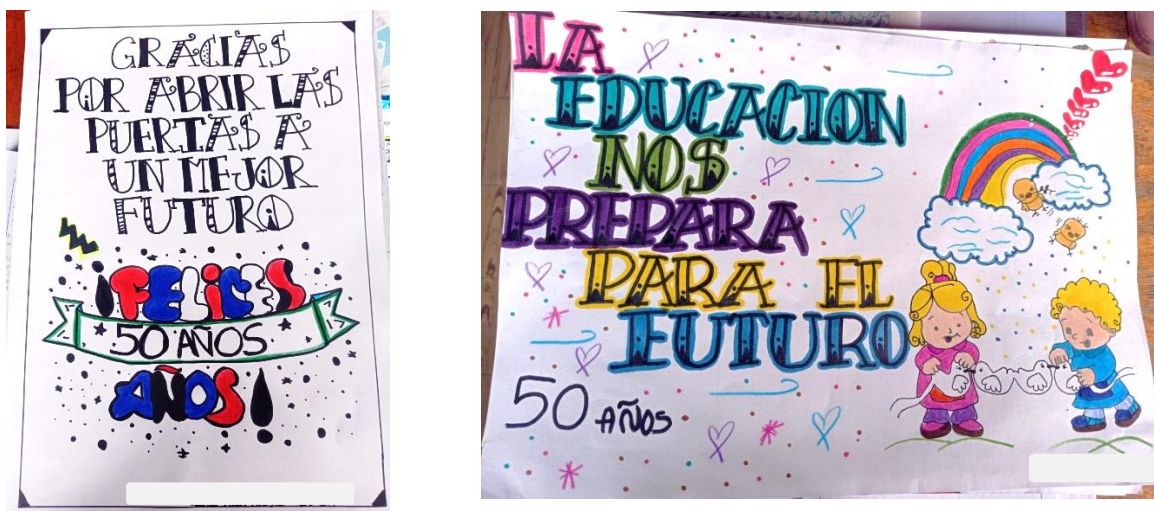 GRACIAS
POR ABRIR LAS
PUERTAS A
UN MEJOR
FUTURO
¡FELICES
50 AÑOS
AÑOS!
LA
EDUCACION
NOS
PREPARA
PARA EL
FUTURO
50 AÑOS